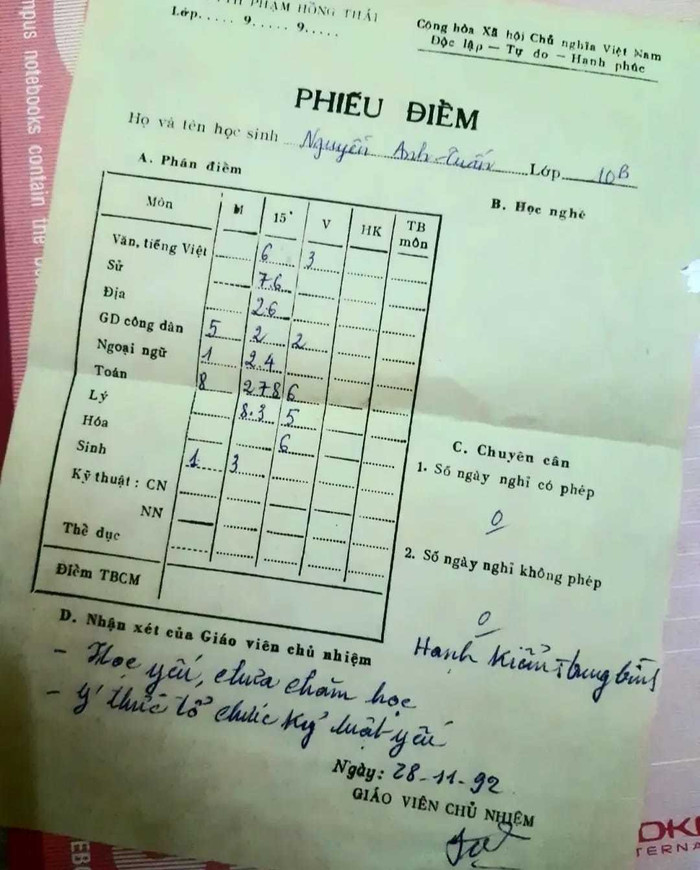 PHẠM HỒNG THÁI
Lớp..... 9..... 9.....
Cộng hòa Xã hội Chủ nghĩa Việt Nam
Độc lập — Tự do — Hạnh phúc
PHIẾU ĐIỂM
Họ và tên học sinh Nguyễn Anh Tuấn Lớp 10B
A. Phần điểm
B. Học nghề
Môn M 15' V HK TB môn
Văn, tiếng Việt 6 3
Sử 7 6
Địa 2 6
GD công dân 5 2 2
Ngoại ngữ 1 2.4
Toán 8 2 7 8 6
Lý 8.3 5
Hóa 6
Sinh 1 3
Kỹ thuật : CN
NN
Thể dục
Điểm TBCM
C. Chuyên cần
1. Số ngày nghỉ có phép
0
2. Số ngày nghỉ không phép
0
Hạnh kiểm: trung bình
D. Nhận xét của Giáo viên chủ nhiệm
- Học yếu, chưa chăm học
- Ý thức tổ chức kỷ luật yếu
Ngày: 28-11-92
GIÁO VIÊN CHỦ NHIỆM
mpus notebooks contain the